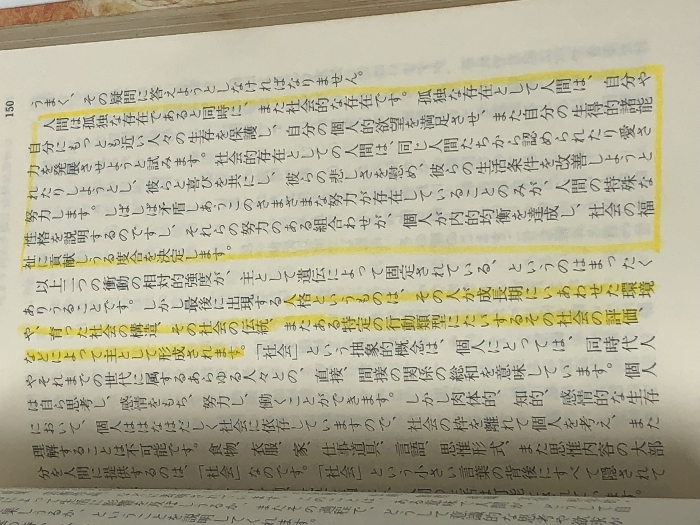 150
うまく、その疑問に答えようとしなければなりません。
人間は孤独な存在であると同時に、また社会的な存在です。孤独な存在として人間は、自分や
自分にもっとも近い人々の生存を保護し、自分の個人的欲望を満足させ、また自分の生得的諸能
力を発展させようと試みます。社会的存在としての人間は、同じ人間たちから認められたり愛さ
れたりしようとし、彼らと喜びを共にし、彼らの悲しさを慰め、彼らの生活条件を改善しようと
努力します。しばしば矛盾しあうこのさまざまな努力が存在していることのみが、人間の特殊な
性格を説明するのですし、それらの努力のある組合わせが、個人が内的均衡を達成し、社会の福
祉に貢献しうる度合を決定します。
以上二つの衝動の相対的強度が、主として遺伝によって固定されている、というのはまったく
ありうることです。しかし最後に出現する人格というものは、その人が成長期にいあわせた環境
や、育った社会の構造、その社会の伝統、またある特定の行動類型にたいするその社会の評価、
などによって主として形成されます。「社会」という抽象的概念は、個人にとっては、同時代人
やそれまでの世代に属するあらゆる人々との、直接、間接の関係の総和を意味しています。個人
は自ら思考し、感情をもち、努力し、働くことができます。しかし肉体的、知的、感情的な生存
において、個人ははなはだしく社会に依存していますので、社会の枠を離れて個人を考え、また
理解することは不可能です。食物、衣服、家、仕事道具、言語、思惟形式、また思惟内容の大部
分を人間に提供するのは、「社会」なのです。「社会」という小さい言葉の背後にすべて隠されて
ということを説明してくれます。